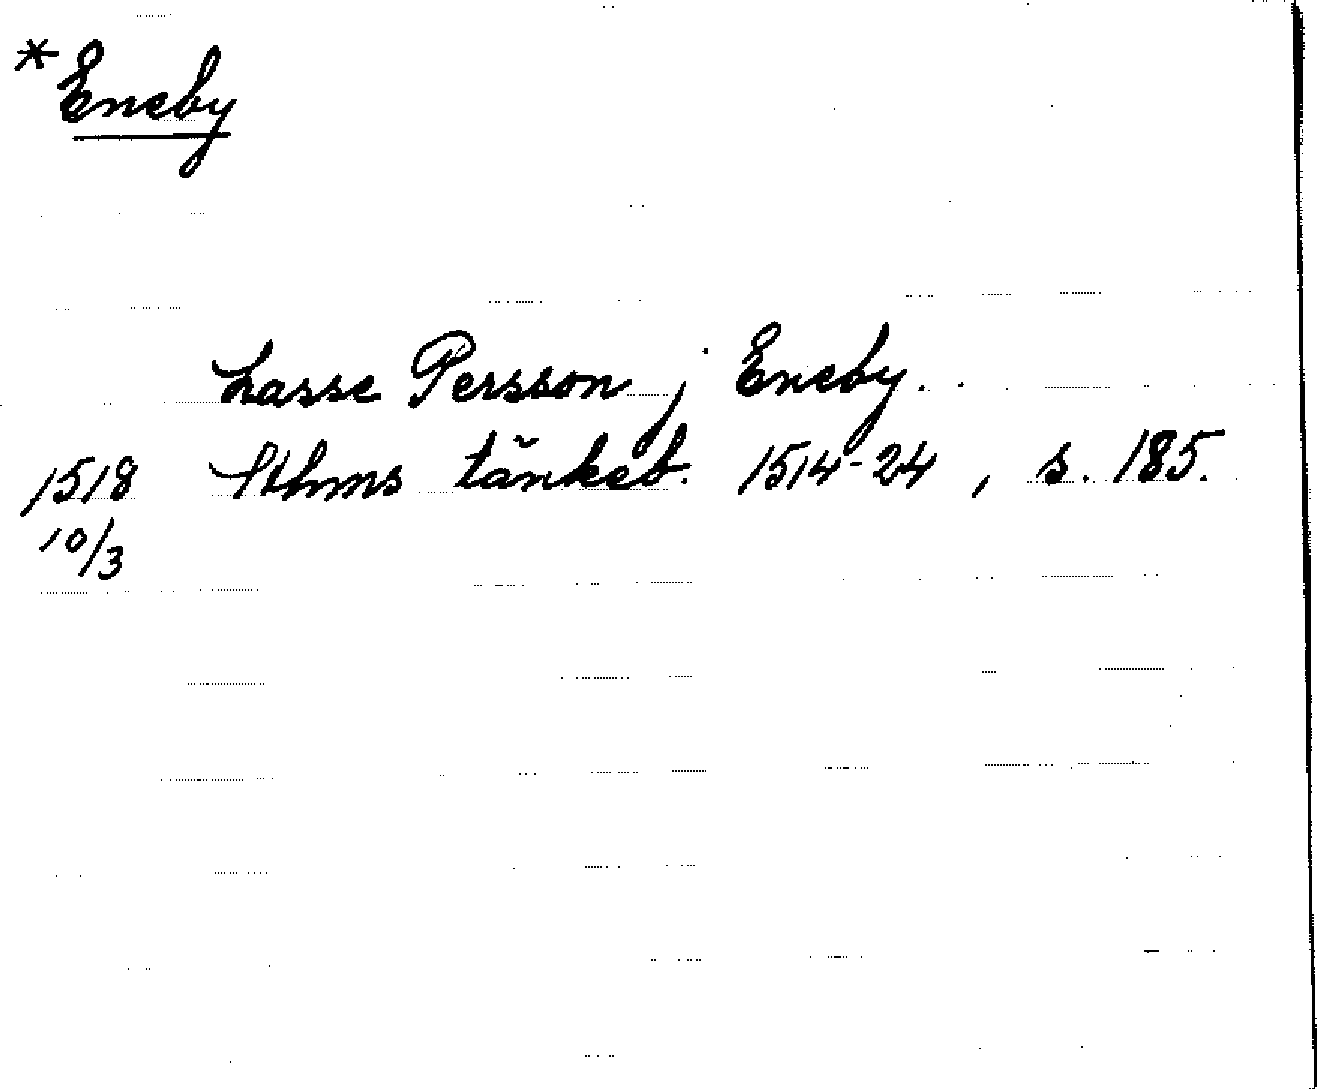 *Eneby
Lasse Persson j Eneby.
1518 Sthms tänkeb. 1514-24, s. 185.
10/3